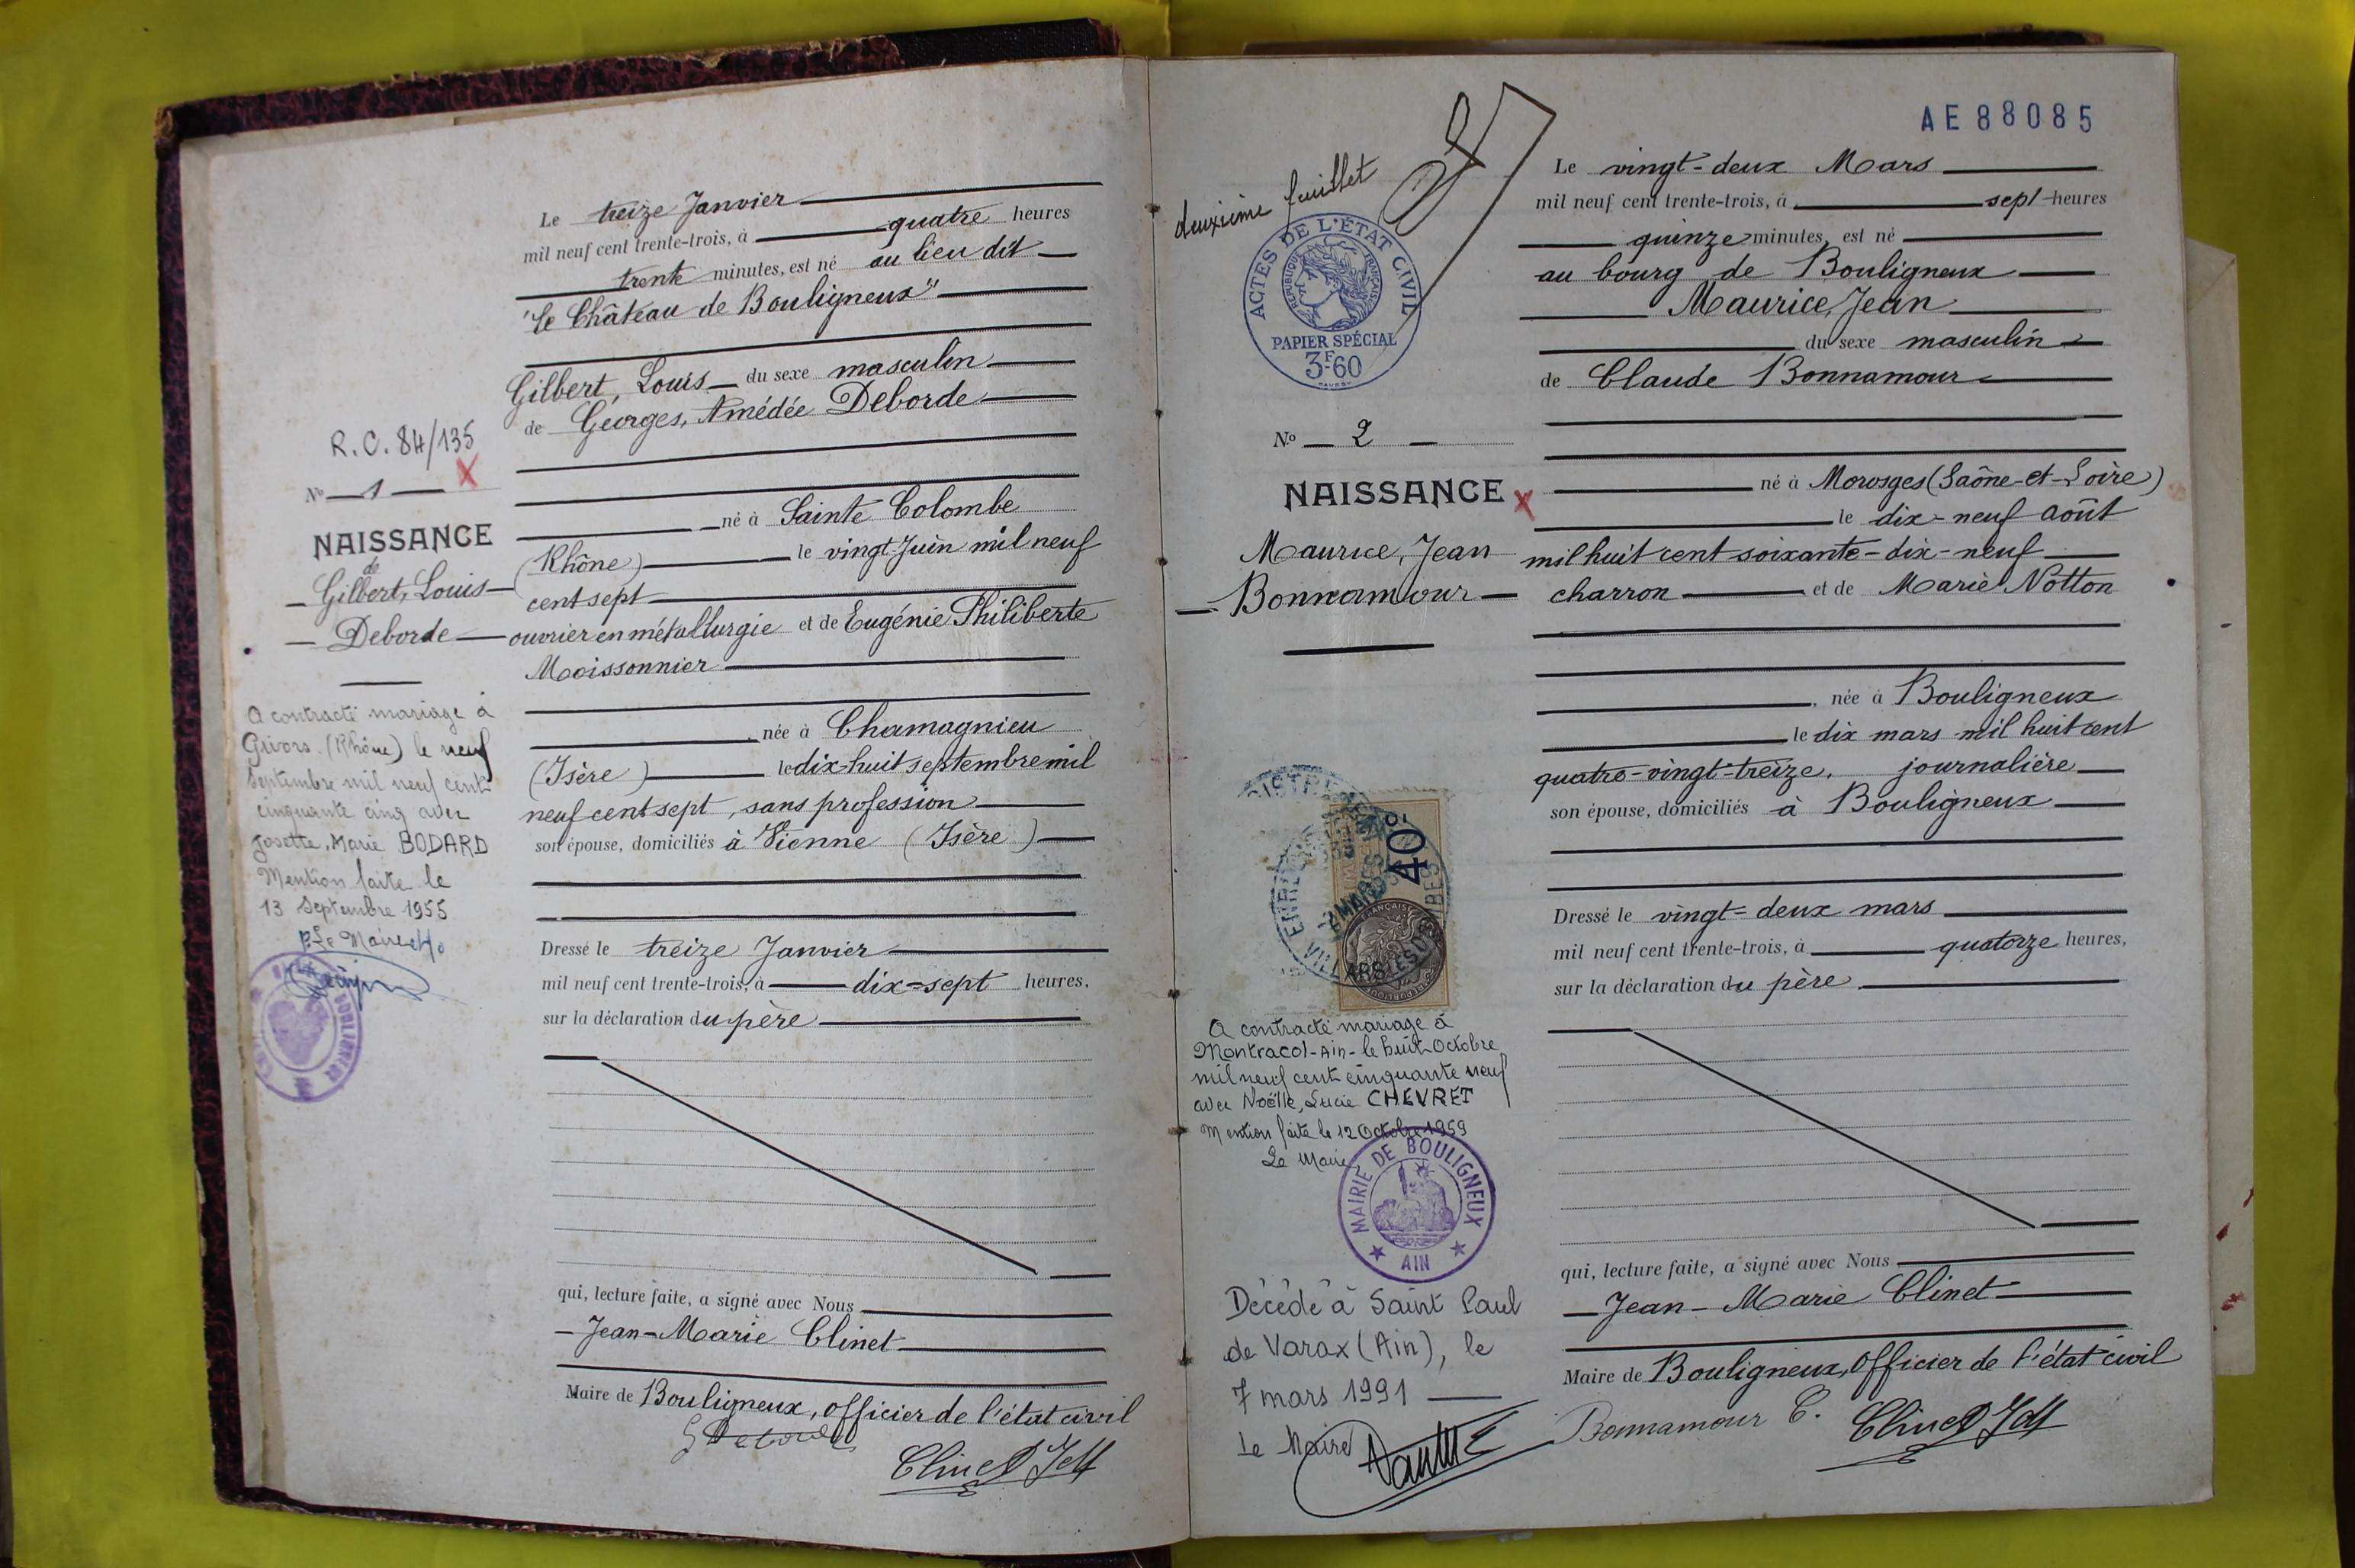 R.C. 84/135
X
No 1
NAISSANCE
de
Gilbert, Louis
Deborde
A contracté mariage à
Givors (Rhône) le neuf
septembre mil neuf cent
cinquante cinq avec
Josette, Marie BODARD
Mention faite le
13 Septembre 1955
Le Maire
Le treize Janvier
mil neuf cent trente-trois, à quatre heures
trente minutes, est né au lieu dit
"le Château de Bouligneux"
Gilbert, Louis du sexe masculin
de Georges, Amédée Deborde
né à Sainte Colombe
(Rhône) le vingt Juin mil neuf
cent sept
ouvrier en métallurgie et de Eugénie Philiberte
Moissonnier
née à Chamagnieu
(Isère) le dix-huit septembre mil
neuf cent sept, sans profession
son épouse, domiciliés à Vienne (Isère)
Dressé le treize Janvier
mil neuf cent trente-trois, à dix-sept heures,
sur la déclaration du père
qui, lecture faite, a signé avec Nous
Jean-Marie Clinet
Maire de Bouligneux, officier de l'état civil
G Deborde
Clinet J M
AE 88085
deuxième feuillet
ACTES DE L'ÉTAT CIVIL
RÉPUBLIQUE FRANÇAISE
PAPIER SPÉCIAL
3F60
No 2
NAISSANCE X
Maurice, Jean
Bonnamour
40
VILLARS-LES-DOMBES
A contracté mariage à
Montracol-Ain-le huit Octobre
mil neuf cent cinquante neuf
avec Noëlle, Lucie CHEVRET
Mention faite le 12 Octobre 1959
Le Maire
MAIRIE DE BOULIGNEUX
AIN
Décédé à Saint Paul
de Varax (Ain), le
7 mars 1991
Le Maire
Le vingt-deux Mars
mil neuf cent trente-trois, à sept heures
quinze minutes, est né
au bourg de Bouligneux
Maurice, Jean
du sexe masculin
de Claude Bonnamour
né à Moroges (Saône-et-Loire)
le dix-neuf août
mil huit cent soixante-dix-neuf
charron et de Marie Notton
née à Bouligneux
le dix mars mil huit cent
quatre-vingt-treize, journalière
son épouse, domiciliés à Bouligneux
Dressé le vingt-deux mars
mil neuf cent trente-trois, à quatorze heures,
sur la déclaration du père
qui, lecture faite, a signé avec Nous
Jean-Marie Clinet
Maire de Bouligneux, officier de l'état civil
Bonnamour C.
Clinet J M